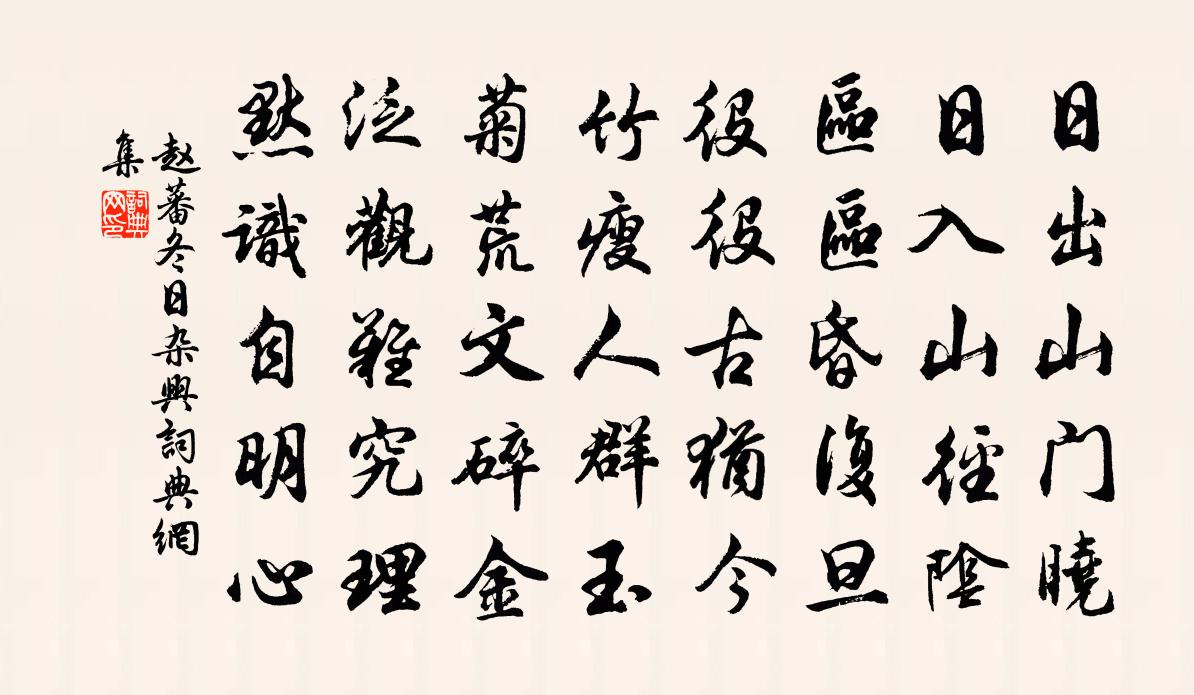 日出山门曉
日入山徑陰
區區昏復旦
役役古猶今
竹瘦人群玉
菊荒文碎金
泛觀難究理
默識自明心
赵蕃冬日杂興詞典網
集
詞典網印